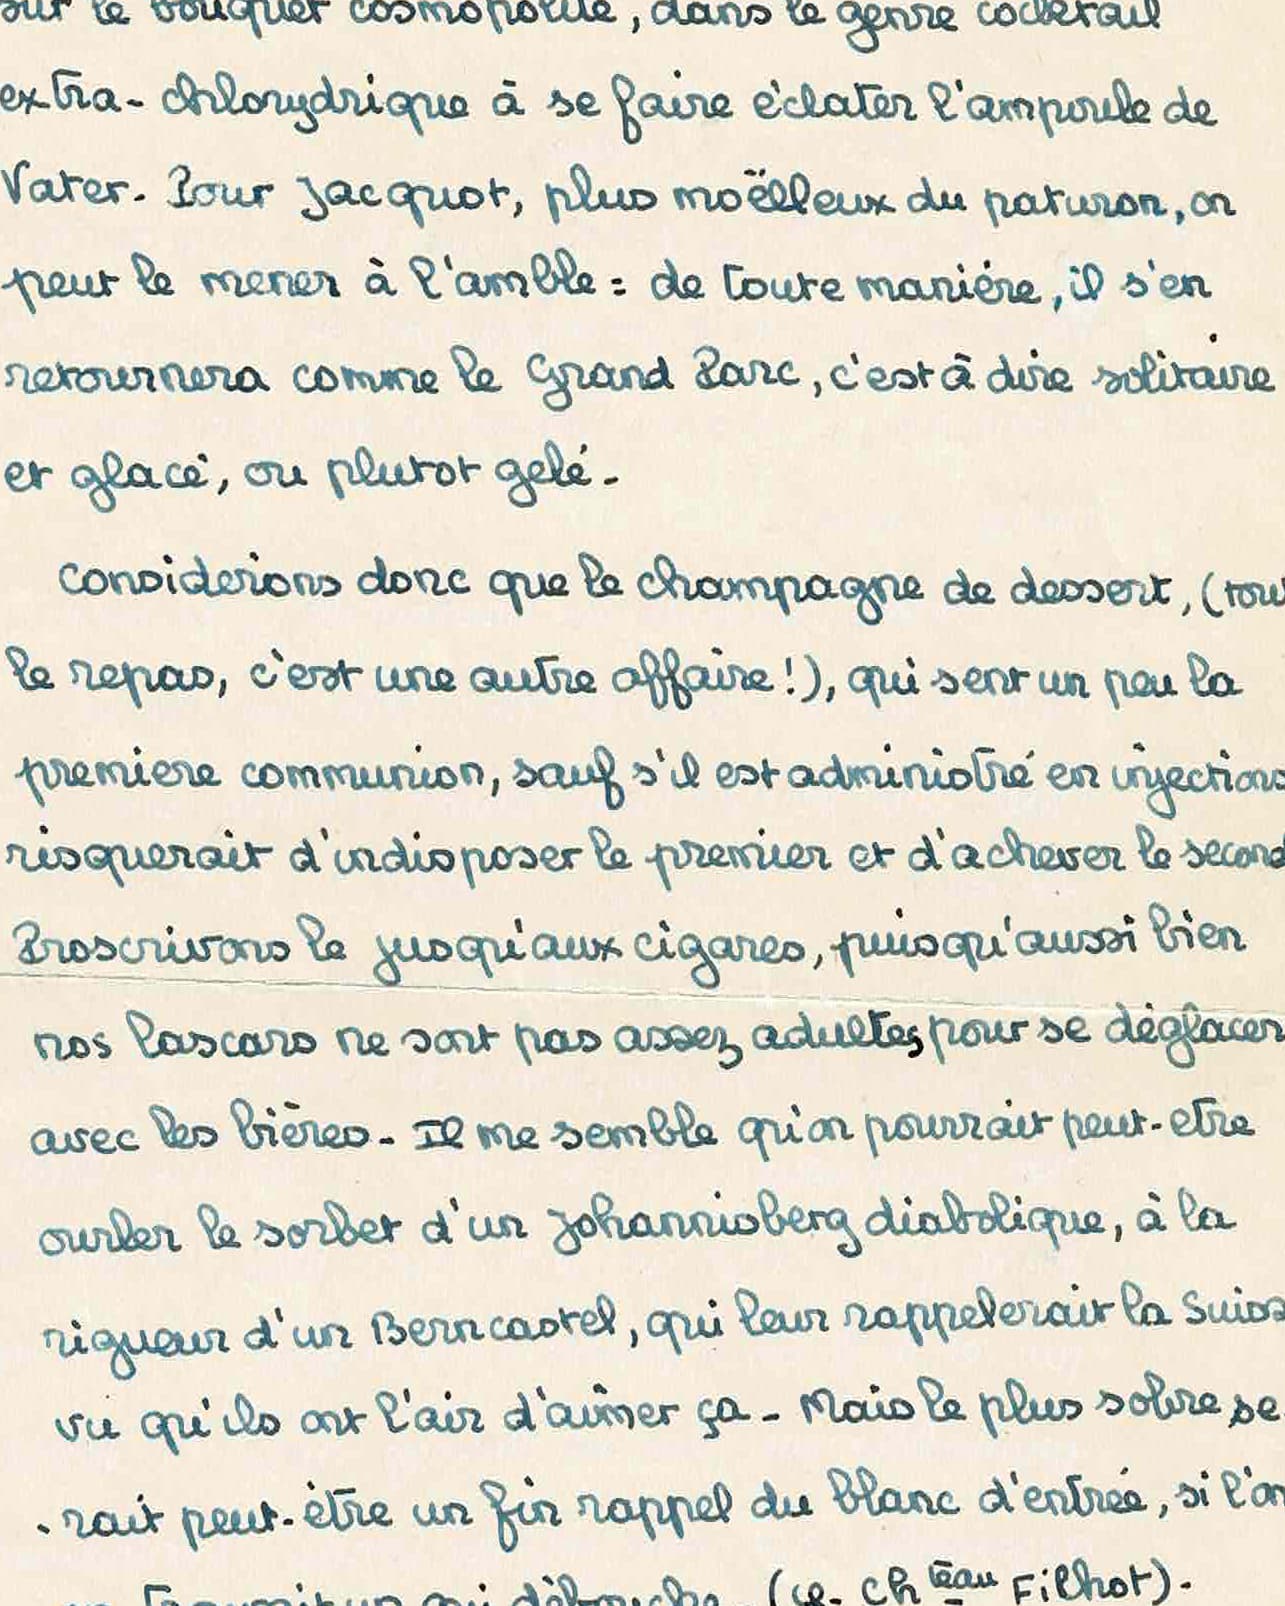 sur le bouquet cosmopolite, dans le genre cocktail
extra-chlorydrique à se faire éclater l'ampoule de
Vater. Pour Jacquot, plus moëlleux du paturon, on
peut le mener à l'amble : de toute maniére, il s'en
retournera comme le Grand Parc, c'est à dire solitaire
et glacé, ou plutot gelé.
Considerions donc que le champagne de dessert, (tout
le repas, c'est une autre affaire !), qui sent un peu la
premiere communion, sauf s'il est administré en injections
risquerait d'indisposer le premier et d'achever le second
Proscrivons le jusqu'aux cigares, puisqu'aussi bien
nos lascars ne sont pas assez adultes pour se déglacer
avec les bières. Il me semble qu'on pourrait peut-etre
ourler le sorbet d'un Johannisberg diabolique, à la
rigueur d'un Berncastel, qui leur rappelerait la Suiss
vu qu'ils ont l'air d'aîmer ça. Mais le plus sobre se
rait peut-être un fin rappel du blanc d'entrée, si l'on
en un qui débouche (cf. Chteau Filhot).